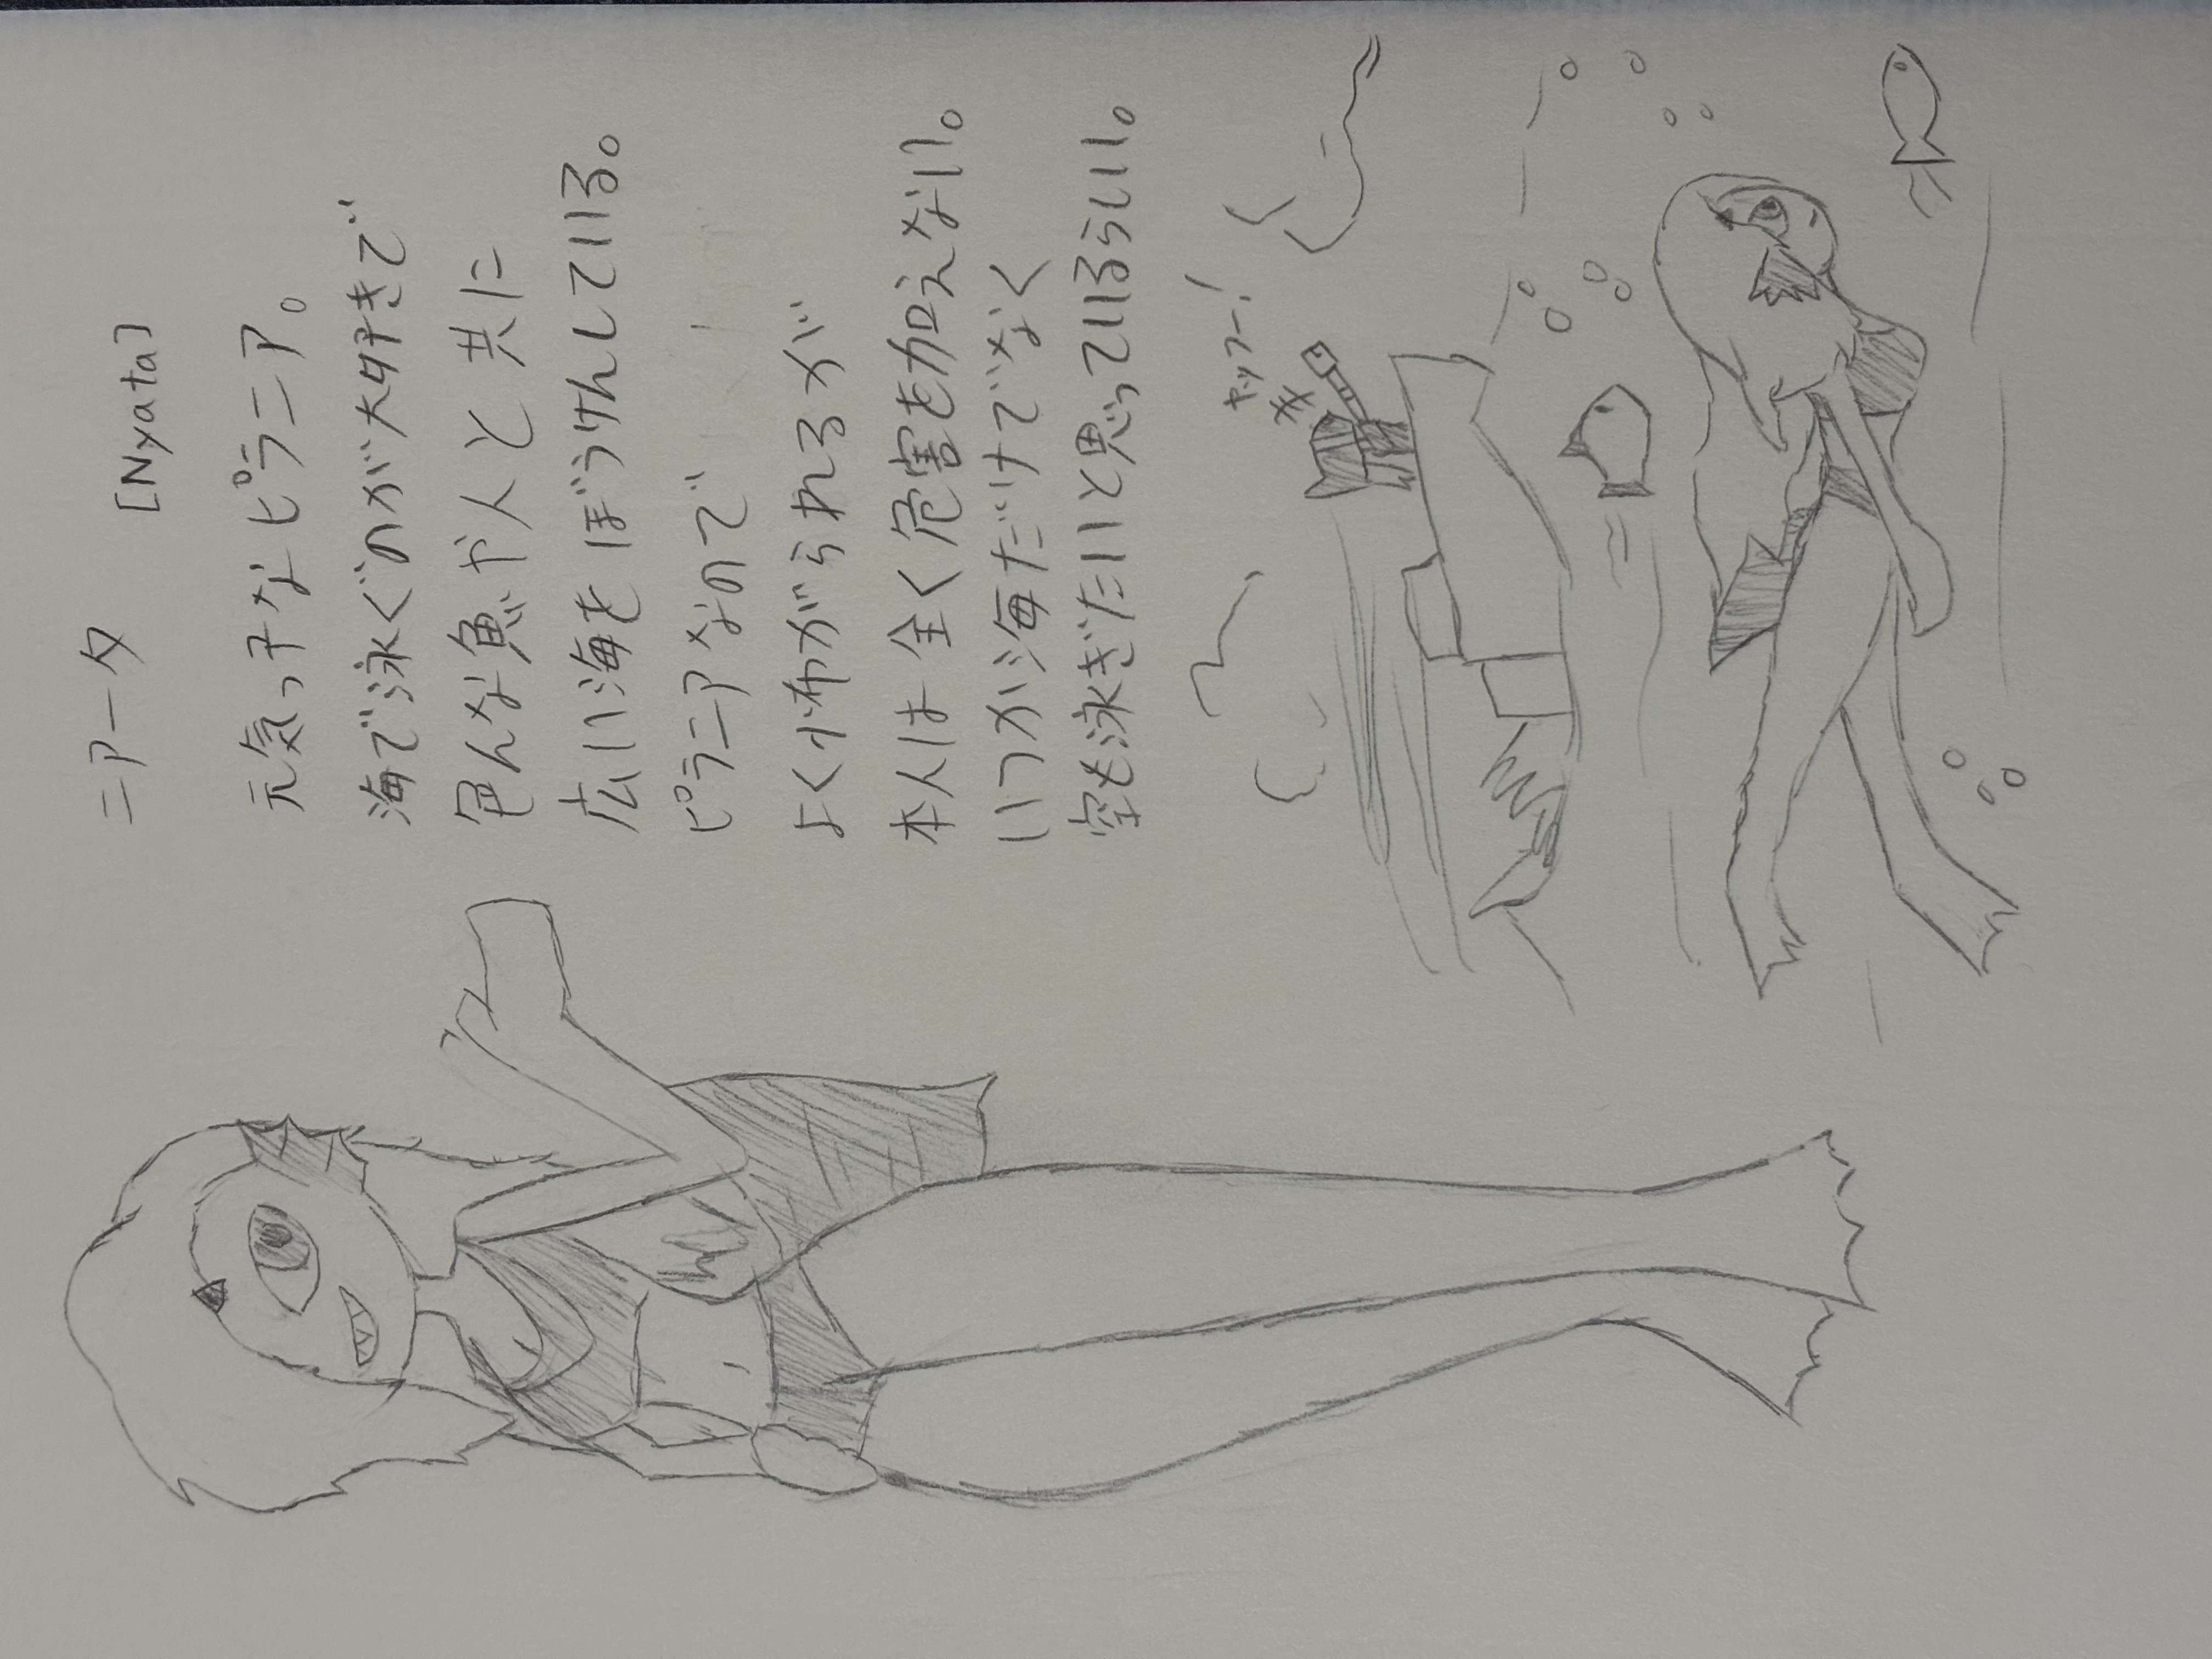 ニアータ
[Nyata]
元気っ子なピラニア。
海で泳ぐのが大好きで
色んな魚や人と共に
広い海をぼうけんしている。
ピラニアなので
よく怖がられるが
本人は全く危害を加えない。
いつか海だけでなく
空も泳ぎたいと思っているらしい。
ヤッフー!